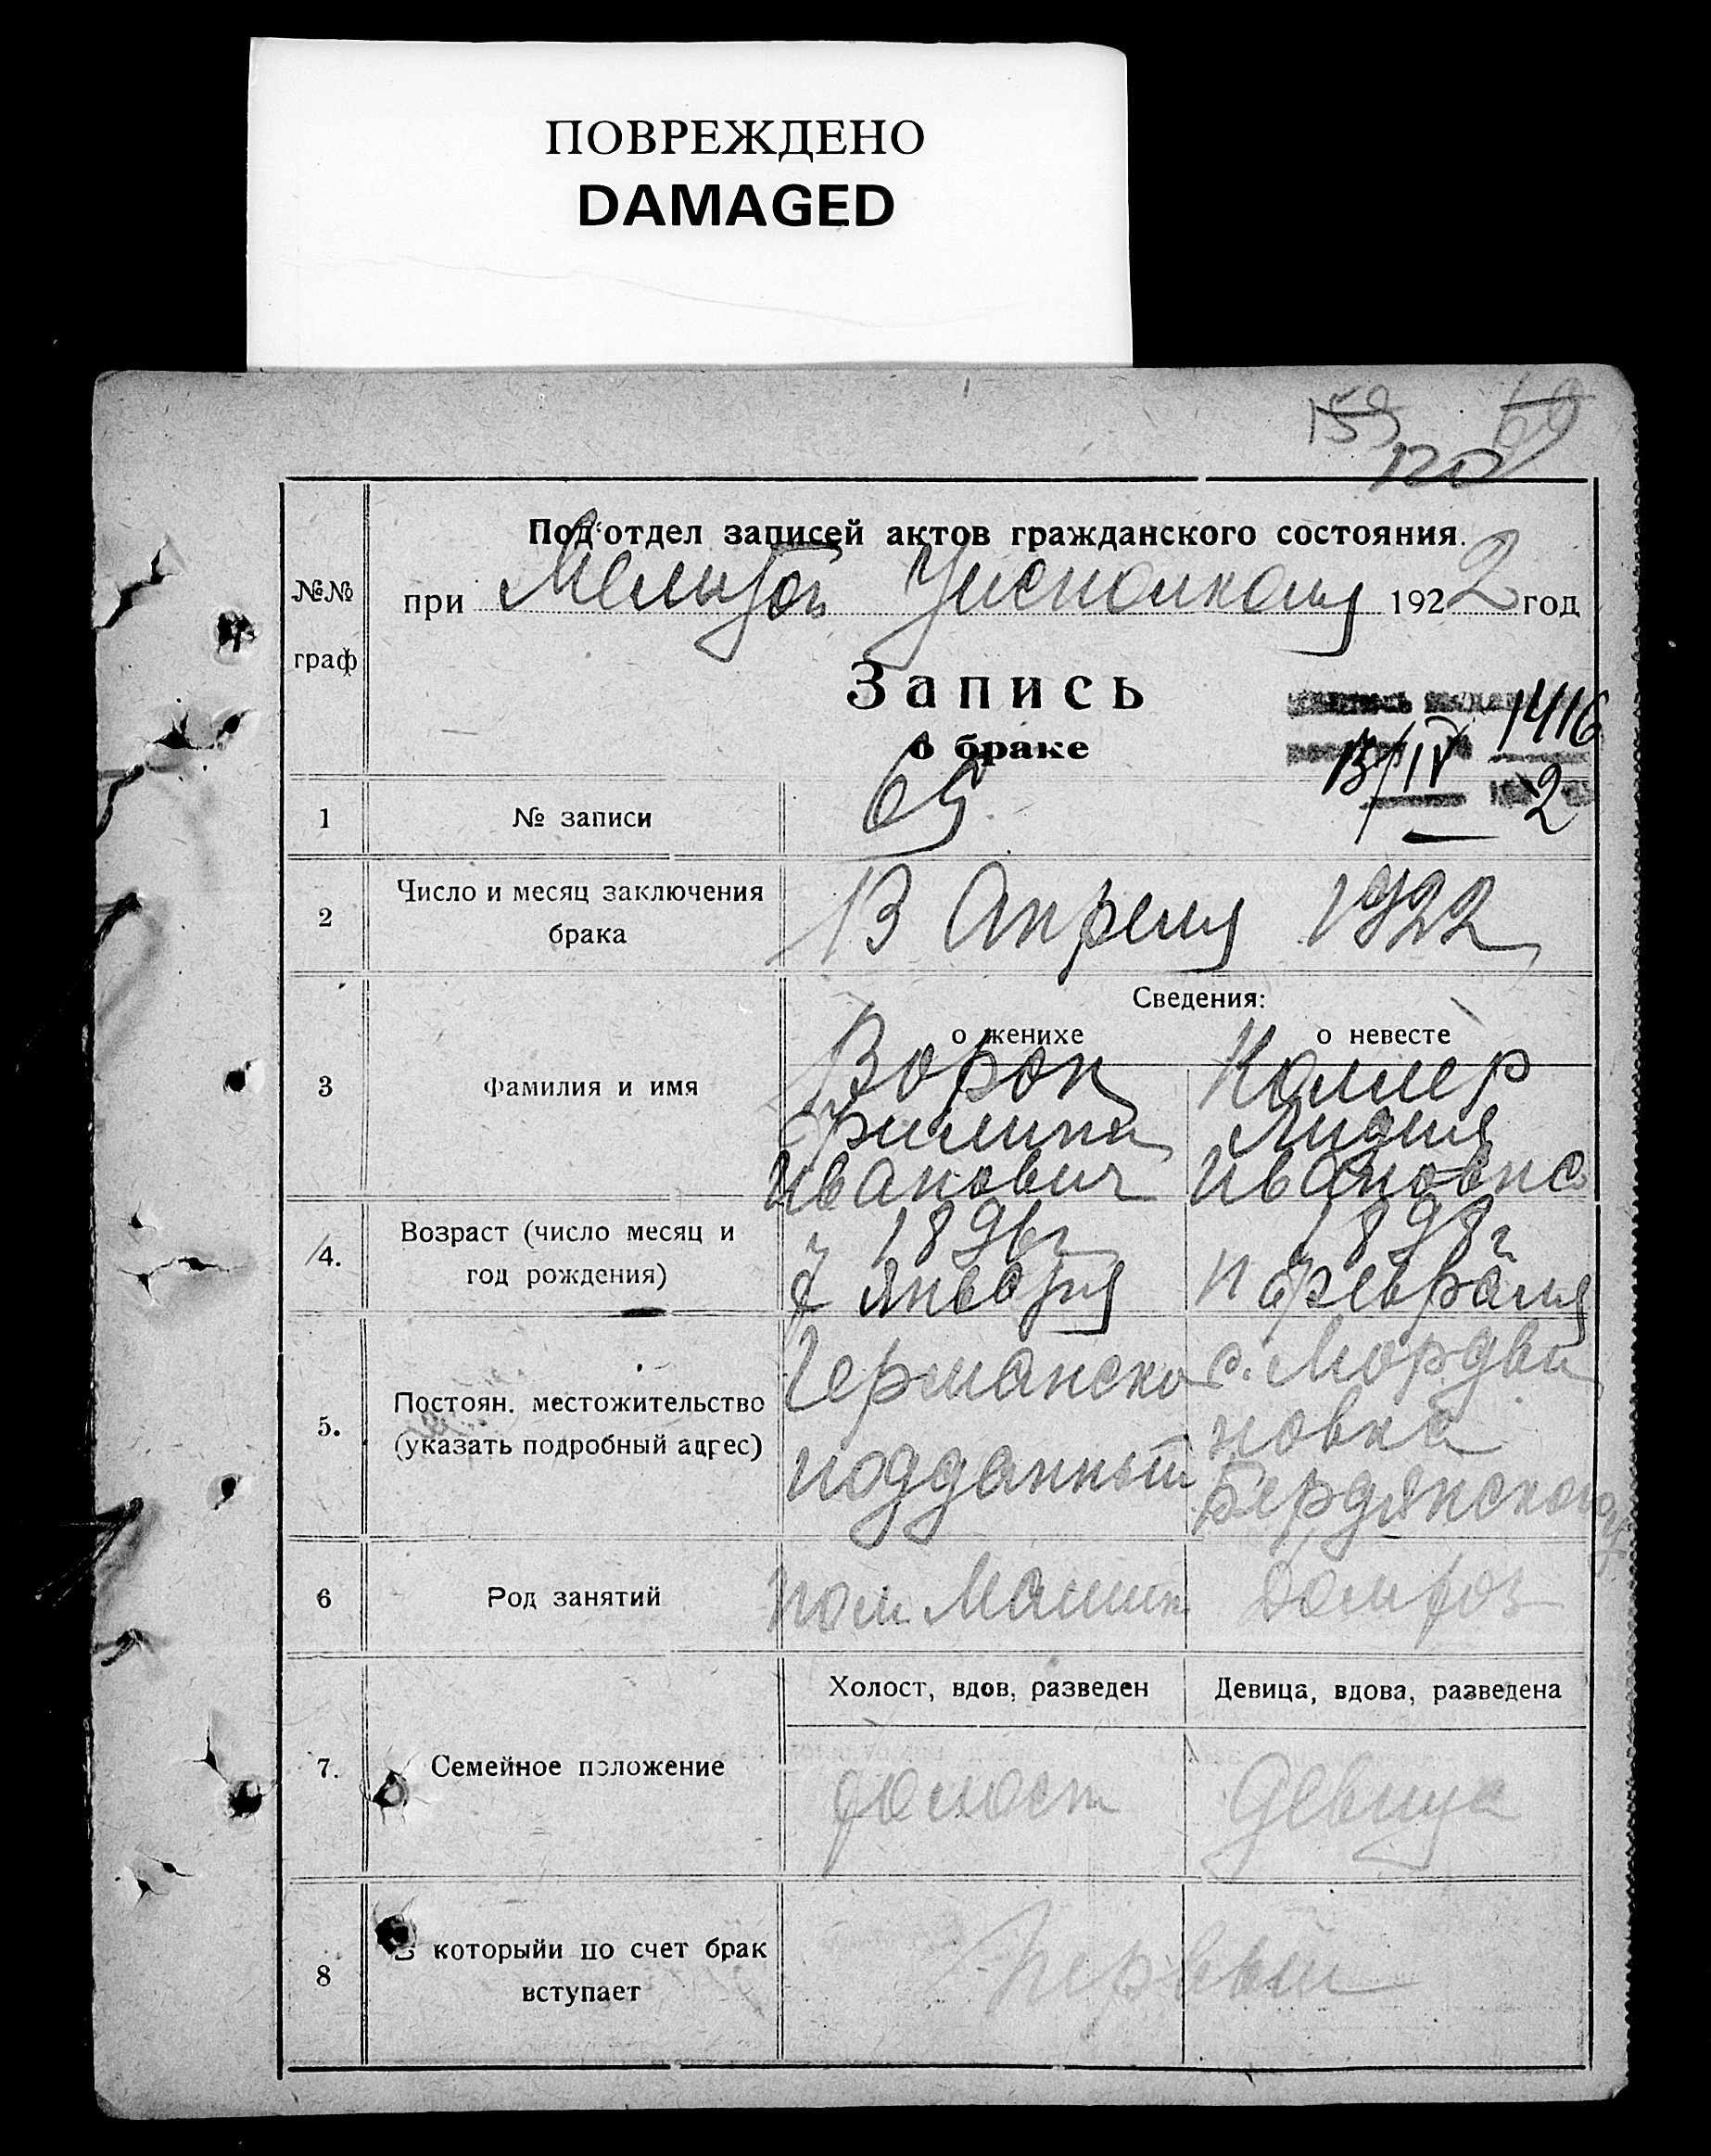 ПОВРЕЖДЕНО
DAMAGED
159 69
120
Под'отдел записей актов гражданского состояния.
№№ граф
при Мелитоп Уисполкому 1922 год
Запись
о браке
1416
13/IV 2
1 № записи 65
2 Число и месяц заключения брака 13 Апреля 1922
Сведения:
о женихе о невесте
3 Фамилия и имя
Ворон Коллер
Филипп Лидия
Иванович Ивановна
4. Возраст (число месяц и год рождения)
1896г 1898г
7 января 11 февраля
5. Постоян. местожительство (указать подробный адрес)
Германско с. Мордви
подданный новка
Бердянского у
6 Род занятий пом Машин домхоз
Холост, вдов, разведен Девица, вдова, разведена
7. Семейное положение холост девица
8 В которыйи по счет брак вступает Первый